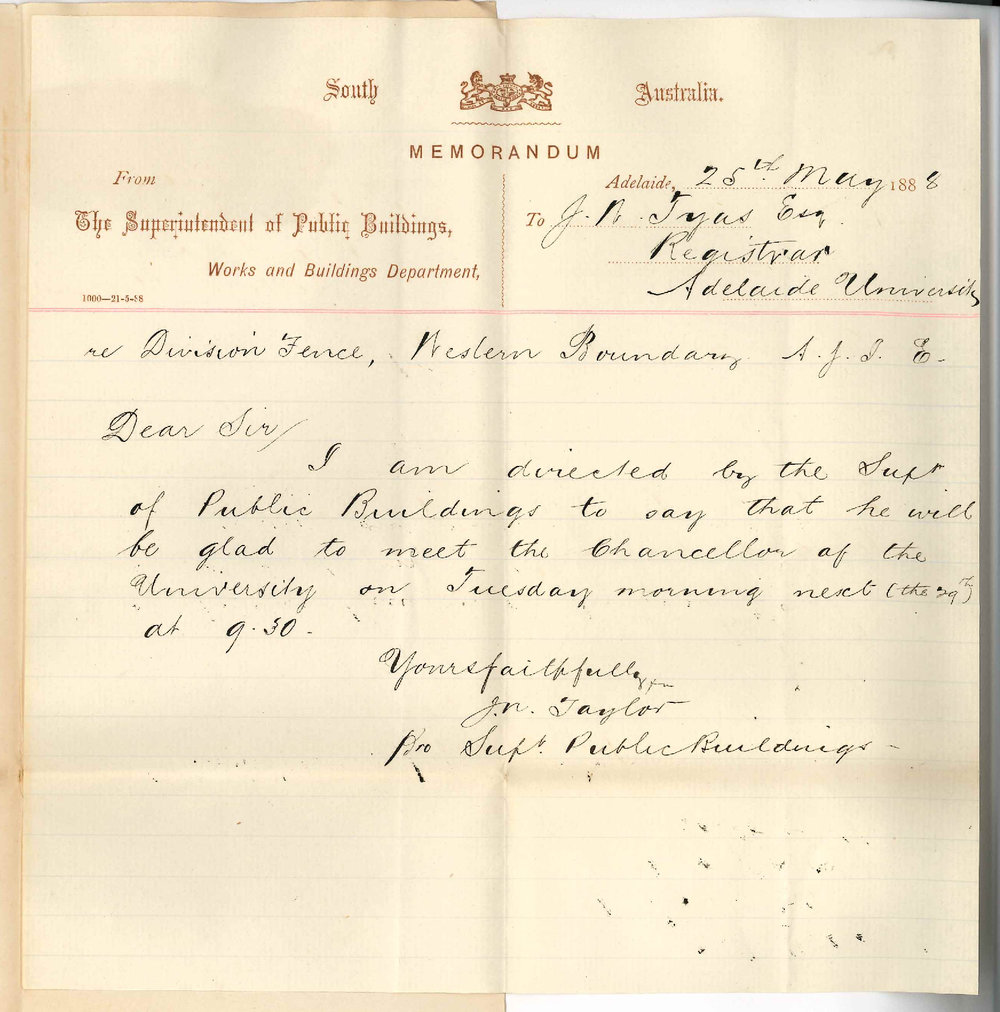 South Australia.
MEMORANDUM
From
The Superintendent of Public Buildings,
Works and Buildings Department,
1000—21-5-88
Adelaide, 25th May 1888
To J. W. Tyas Esq
Registrar
Adelaide University
re Division Fence, Western Boundary A. J. I. E.
Dear Sir/
I am directed by the Supt
of Public Buildings to say that he will
be glad to meet the Chancellor of the
University on Tuesday morning next (the 29th)
at 9.30.
Yours faithfully
J.N. Taylor
pro Supt. Public Buildings